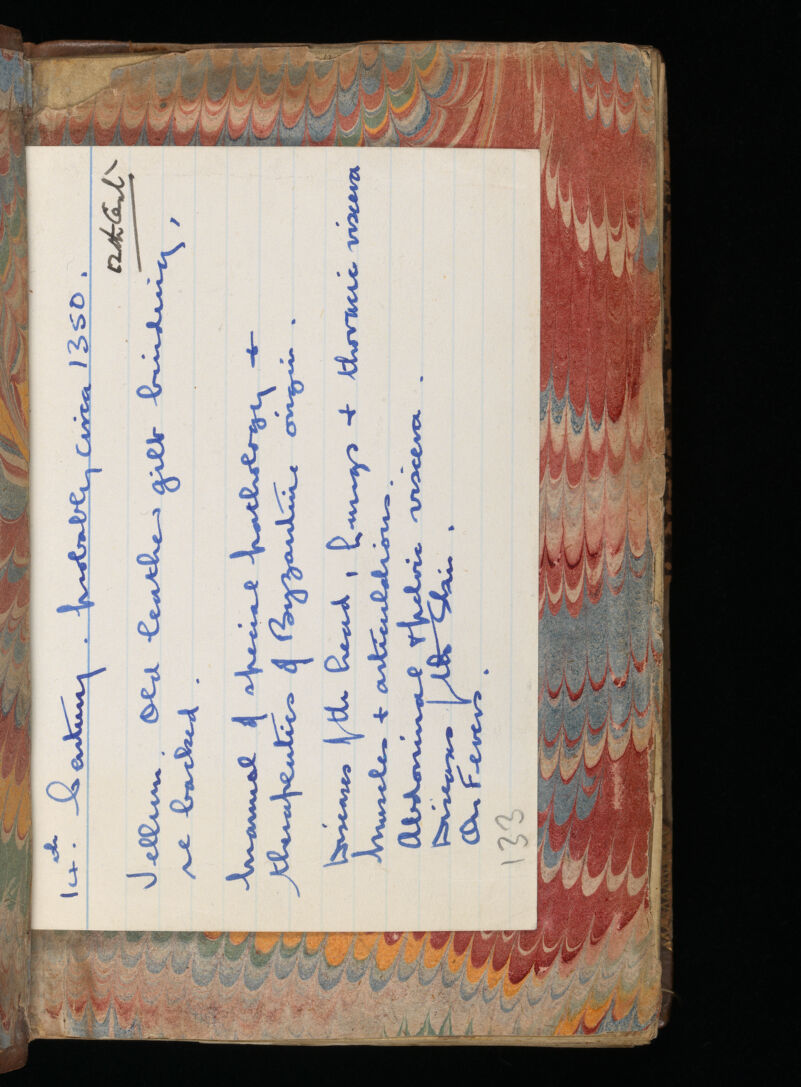 14th. Century. probably circa 1350.
12th Cent
Vellum. Old leather gilt binding,
re backed.
Manual of special pathology +
therapeutics of Byzantine origin.
Diseases of the head, lungs + thoracic viscera
Muscles + articulations.
Abdominal + pelvic viscera.
Diseases of the Skin.
On Fevers.
133